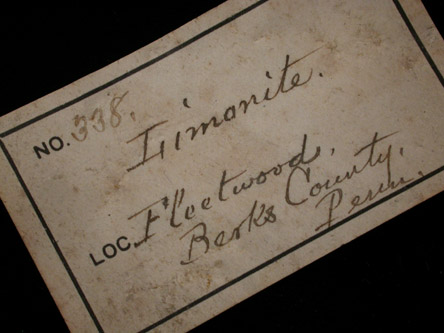 NO. 338.
Limonite.
LOC. Fleetwood,
Berks County,
Penn.